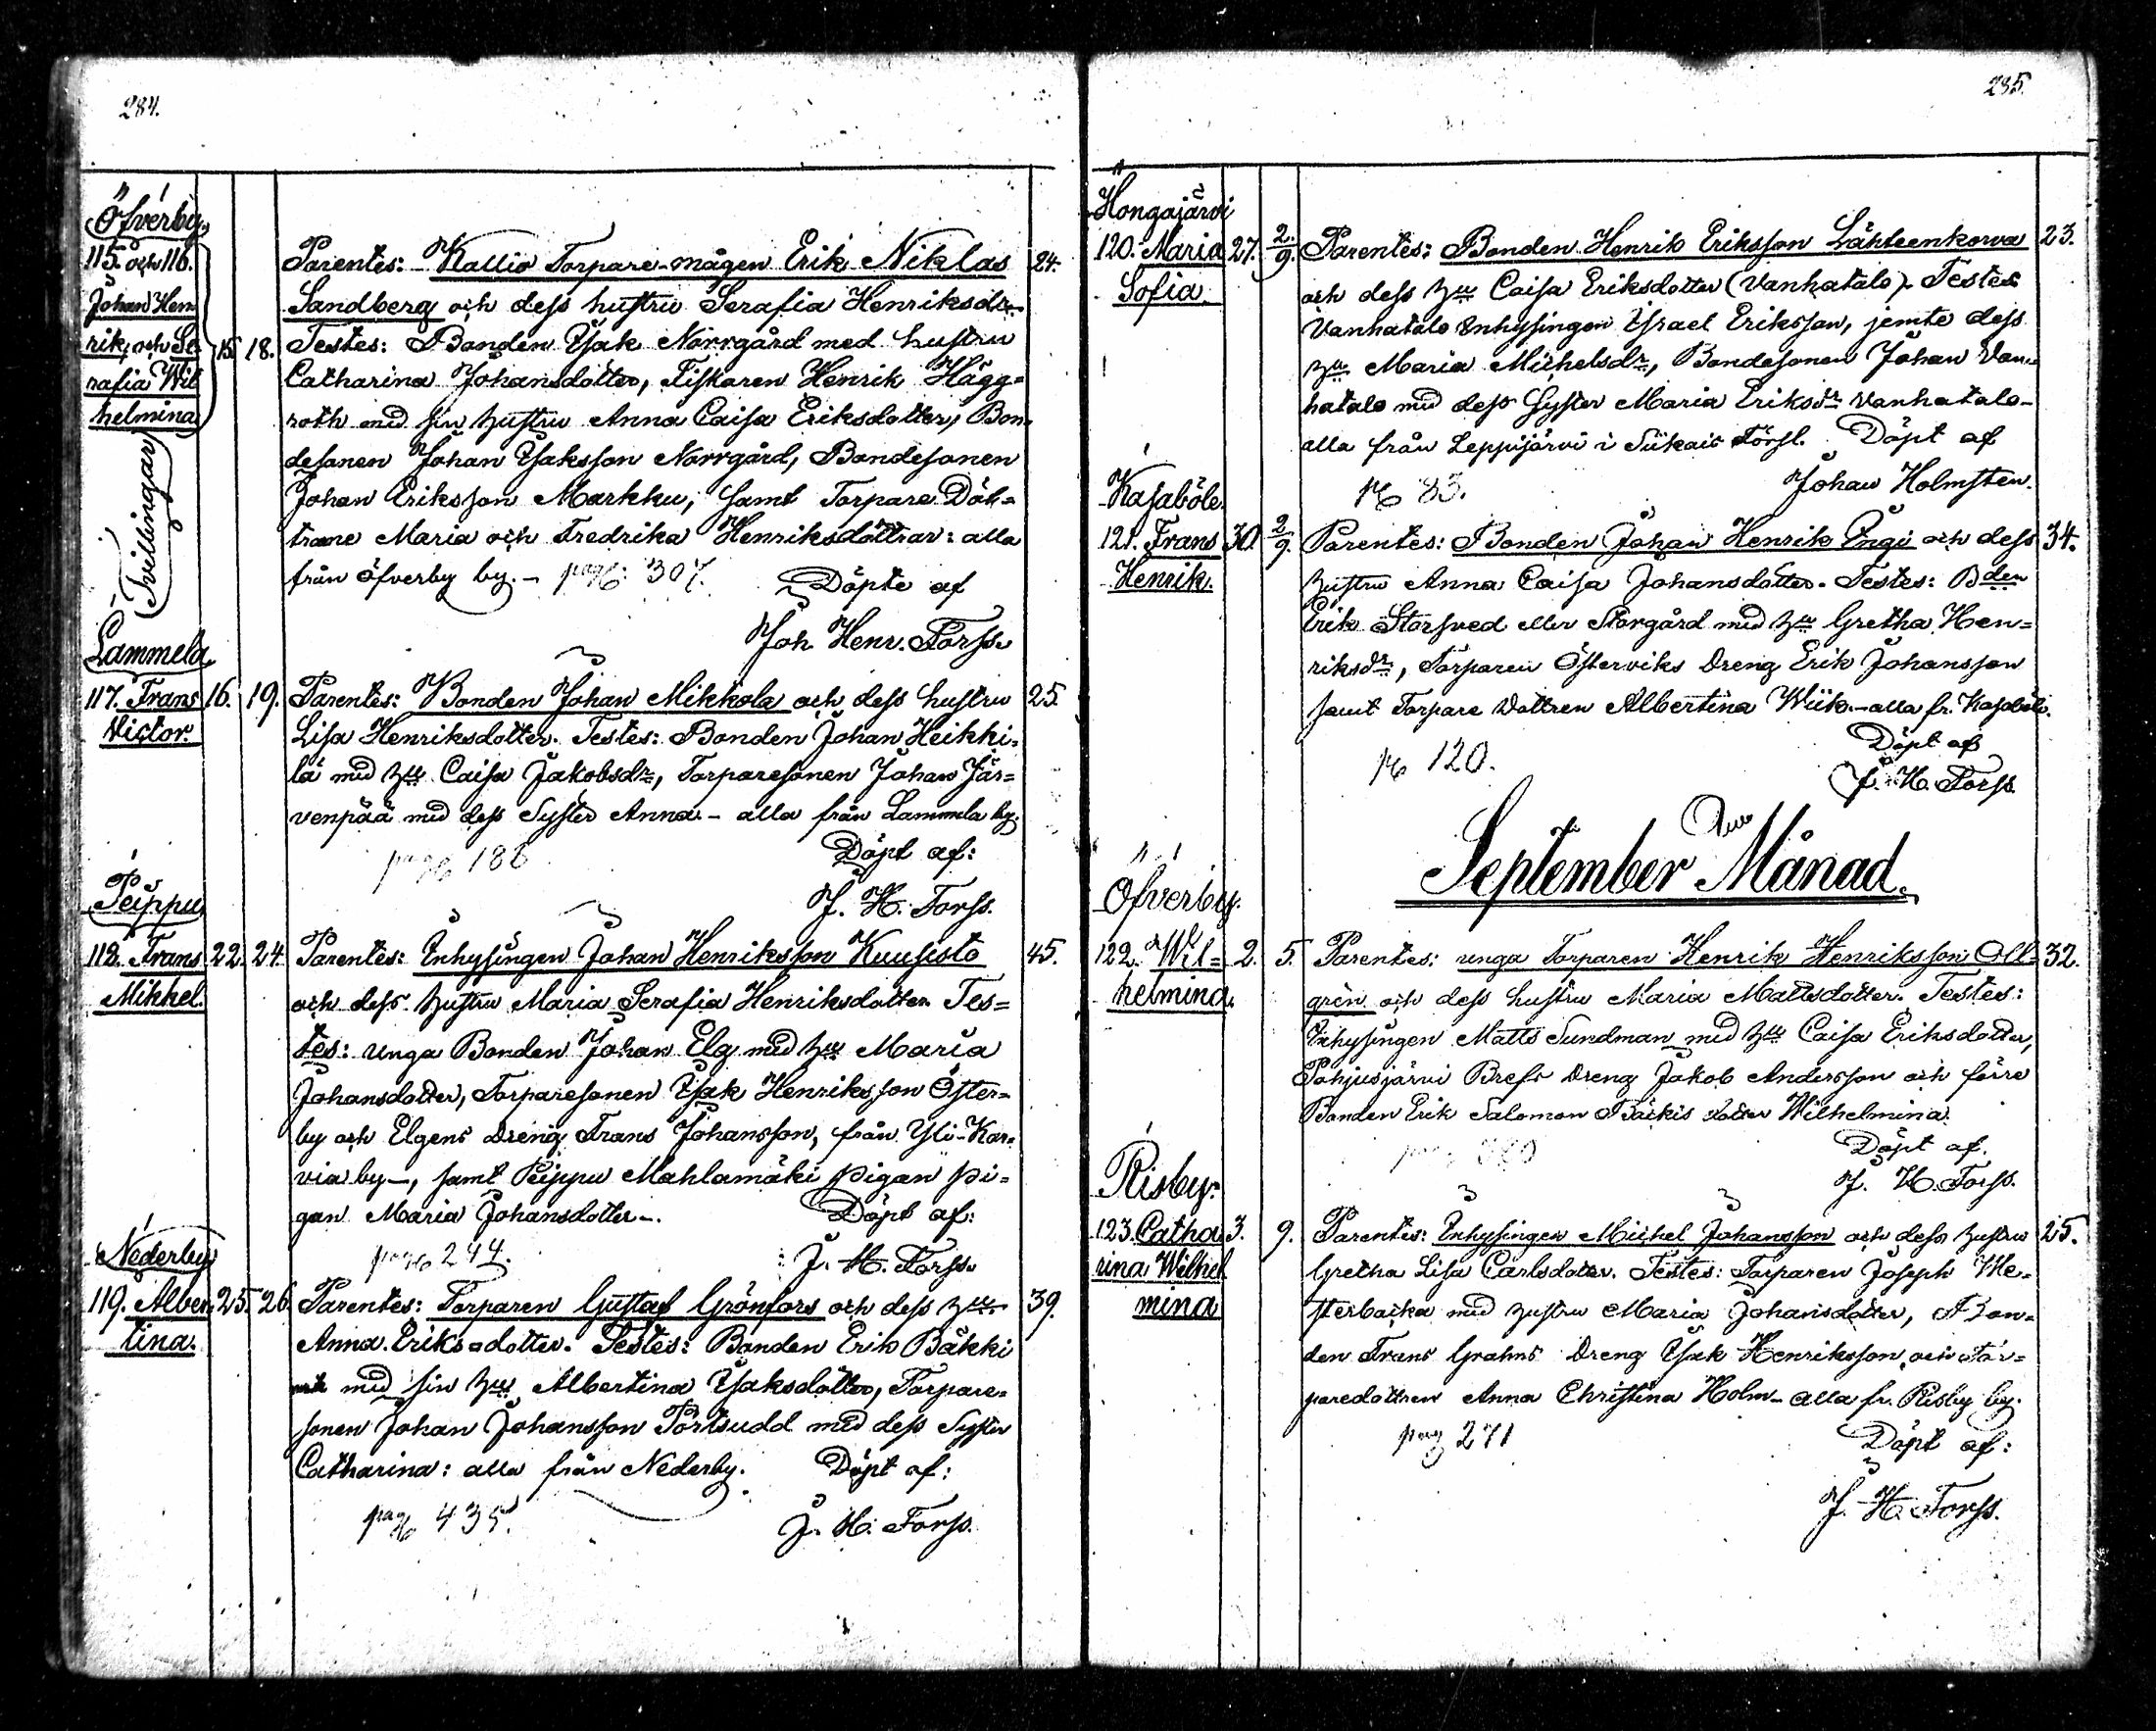 284.
Öfverby.
115. och 116.
Johan Hen
rik, och Se-
rafia Wil
helmina
Tvillingar
15. 18.
Parentes: Kallio Torpare-mågen Erik Niklas 24.
Sandberg och dess hustru Serafia Henriksdr.
Testes: Bonden Isak Norrgård med hustru
Catharina Johansdotter, Fiskaren Henrik Hägg=
roth med sin hustru Anna Caisa Eriksdotter, Bon-
desonen Johan Isaksson Norrgård, Bondesonen
Johan Eriksson Markku, samt Torpare Döt=
trarne Maria och Fredrika Henriksdöttrar: alla
från Öfverby by. - pag: 307.
Döpte af
Joh. Henr. Forss.
Lammela
117. Frans
Victor.
16. 19.
Parentes: Bonden Johan Mikkola och dess hustru 25.
Lisa Henriksdotter. Testes: Bonden Johan Heikki=
lä med hu Caisa Jakobsdr, Torparesonen Johan Jär=
venpää med dess Syster Anna. - alla från Lammela by.
Döpt af:
J. H. Forss.
Peippu
118. Frans
Mikkel.
22. 24.
Parentes: Inhysingen Johan Henriksson Kuusisto 45.
och dess hustru Maria Serafia Henriksdotter. Tes=
tes: unga Bonden Johan Elg med hu Maria
Johansdotter, Torparesonen Isak Henriksson Öster=
by och Elgens Dreng Frans Johansson, från Yli-Kar-
via by -, samt Peippu Mahlamäki pigan pi=
gan Maria Johansdotter -.
Döpt af:
pag 244.
J. H. Forss.
Nederby
119. Alber-
tina.
25. 26.
Parentes: Torparen Gustaf Grönfors och dess hu 39.
Anna Eriks=dotter. Testes: Bonden Erik Bäkki
med sin hu Albertina Isaksdotter, Torpare=
sonen Johan Johansson Törtsudd med dess Syster
Catharina: alla från Nederby.
Döpt af:
pag 435.
J. H. Forss.
285.
Hongajärvi
120. Maria
Sofia.
27. 2/9.
Parentes: Bonden Henrik Eriksson Lähteenkorva 23.
och dess hu Caisa Eriksdotter (Vanhatalo). Testes
Vanhatalo Inhysingen Israel Eriksson, jemte dess
hu Maria Michelsdr, Bondesonen Johan Van-
hatalo med dess Syster Maria Eriksdr Vanhatalo -
alla från Leppijärvi i Siikais Försl.
Döpt af
Johan Holmsten.
83.
Kasaböle.
121. Frans
Henrik.
30. 2/9.
Parentes: Bonden Johan Henrik Engi och dess 34.
hustru Anna Caisa Johansdotter. Testes: Bden
Erik Storsved eller Storgård med hu Gretha Hen=
riksdr, Torparen Österviks Dreng Erik Johansson
samt Torpare Dottren Albertina Wiik. - alla fr. Kasaböle.
Döpt af
120.
J. H. Forss
September Månad.
Öfverby.
122. Wil=
helmina.
2. 5.
Parentes: unga Torparen Henrik Henriksson All- 32.
grén och dess hustru Maria Mattsdotter. Testes:
Inhysingen Matts Sundman med hu Caisa Eriksdotter,
Pohjusjärvi Brefs Dreng Jakob Andersson och förre
Bonden Erik Salomon Bäckis dotter Wilhelmina.
Döpt af.
J. H. Forss.
Risby.
123. Catha-
rina Wilhel
mina
3. 9.
Parentes: Inhysingen Michel Johansson och dess hustru 25.
Gretha Lisa Carlsdotter. Testes: Torparen Joseph We-
sterbacka med hustru Maria Johansdotter, Bon-
den Frans Grahns Dreng Isak Henriksson och Tor=
paredottren Anna Christina Holm - alla fr. Risby by.
pag 271
Döpt af:
J. H. Forss.